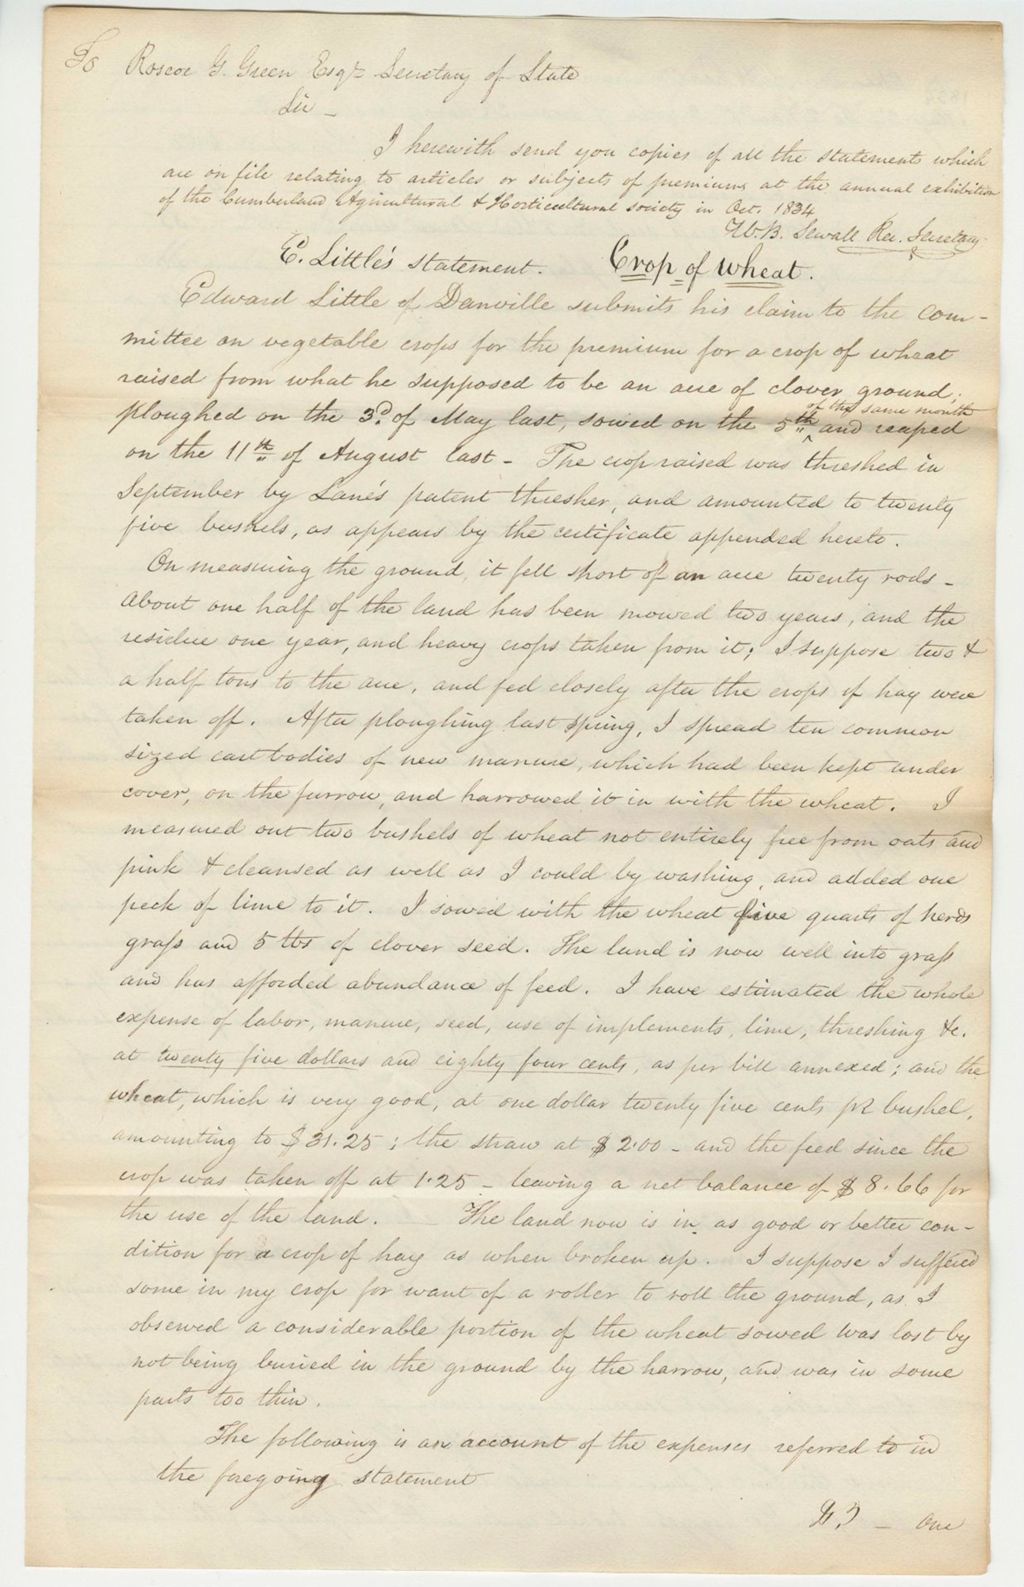 To Roscoe G. Green Esqr. Secretary of State
Sir -
I herewith send you copies of all the statements which
are on file relating to articles or subjects of premiums at the annual exhibition
of the Cumberland Agricultural & Horticultural society in Oct. 1834
W.B. Sewall Rec. Secretary
E. Little's statement. Crop of wheat.
Edward Little of Danville submits his claim to the com-
mittee on vegetable crops for the premium for a crop of wheat
raised from what he supposed to be an acre of clover ground;
of the same month
ploughed on the 3d. of May last, sowed on the 5th ^ and reaped
on the 11th of August last - The crop raised was threshed in
September by Lane's patent thresher, and amounted to twenty
five bushels, as appears by the certificate appended hereto.
On measuring the ground, it fell short of an acre twenty rods -
About one half of the land has been mowed two years, and the
residue one year, and heavy crops taken from it; I suppose two &
a half tons to the acre, and fed closely after the crops of hay were
taken off. After ploughing last spring, I spread ten common
sized cart bodies of new manure, which had been kept under
cover, on the furrow, and harrowed it in with the wheat. I
measured out two bushels of wheat not entirely free from oats and
pink & cleansed as well as I could by washing, and added one
peck of lime to it. I sowed with the wheat five quarts of herds
grass and 5 lbs of clover seed. The land is now well into grass
and has afforded abundance of feed. I have estimated the whole
expense of labor, manure, seed, use of implements, lime, threshing &c.
at twenty five dollars and eighty four cents, as per bill annexed; and the
wheat, which is very good, at one dollar twenty five cents pr bushel,
amounting to $31.25; the straw at $2.00 - and the feed since the
crop was taken off at 1.25 - leaving a net balance of $8.66 for
the use of the land. The land now is in as good or better con-
dition for a crop of hay as when broken up. I suppose I suffered
some in my crop for want of a roller to roll the ground, as I
observed a considerable portion of the wheat sowed was lost by
not being buried in the ground by the harrow, and was in some
parts too thin.
The following is an account of the expenses referred to in
the foregoing statement
- One